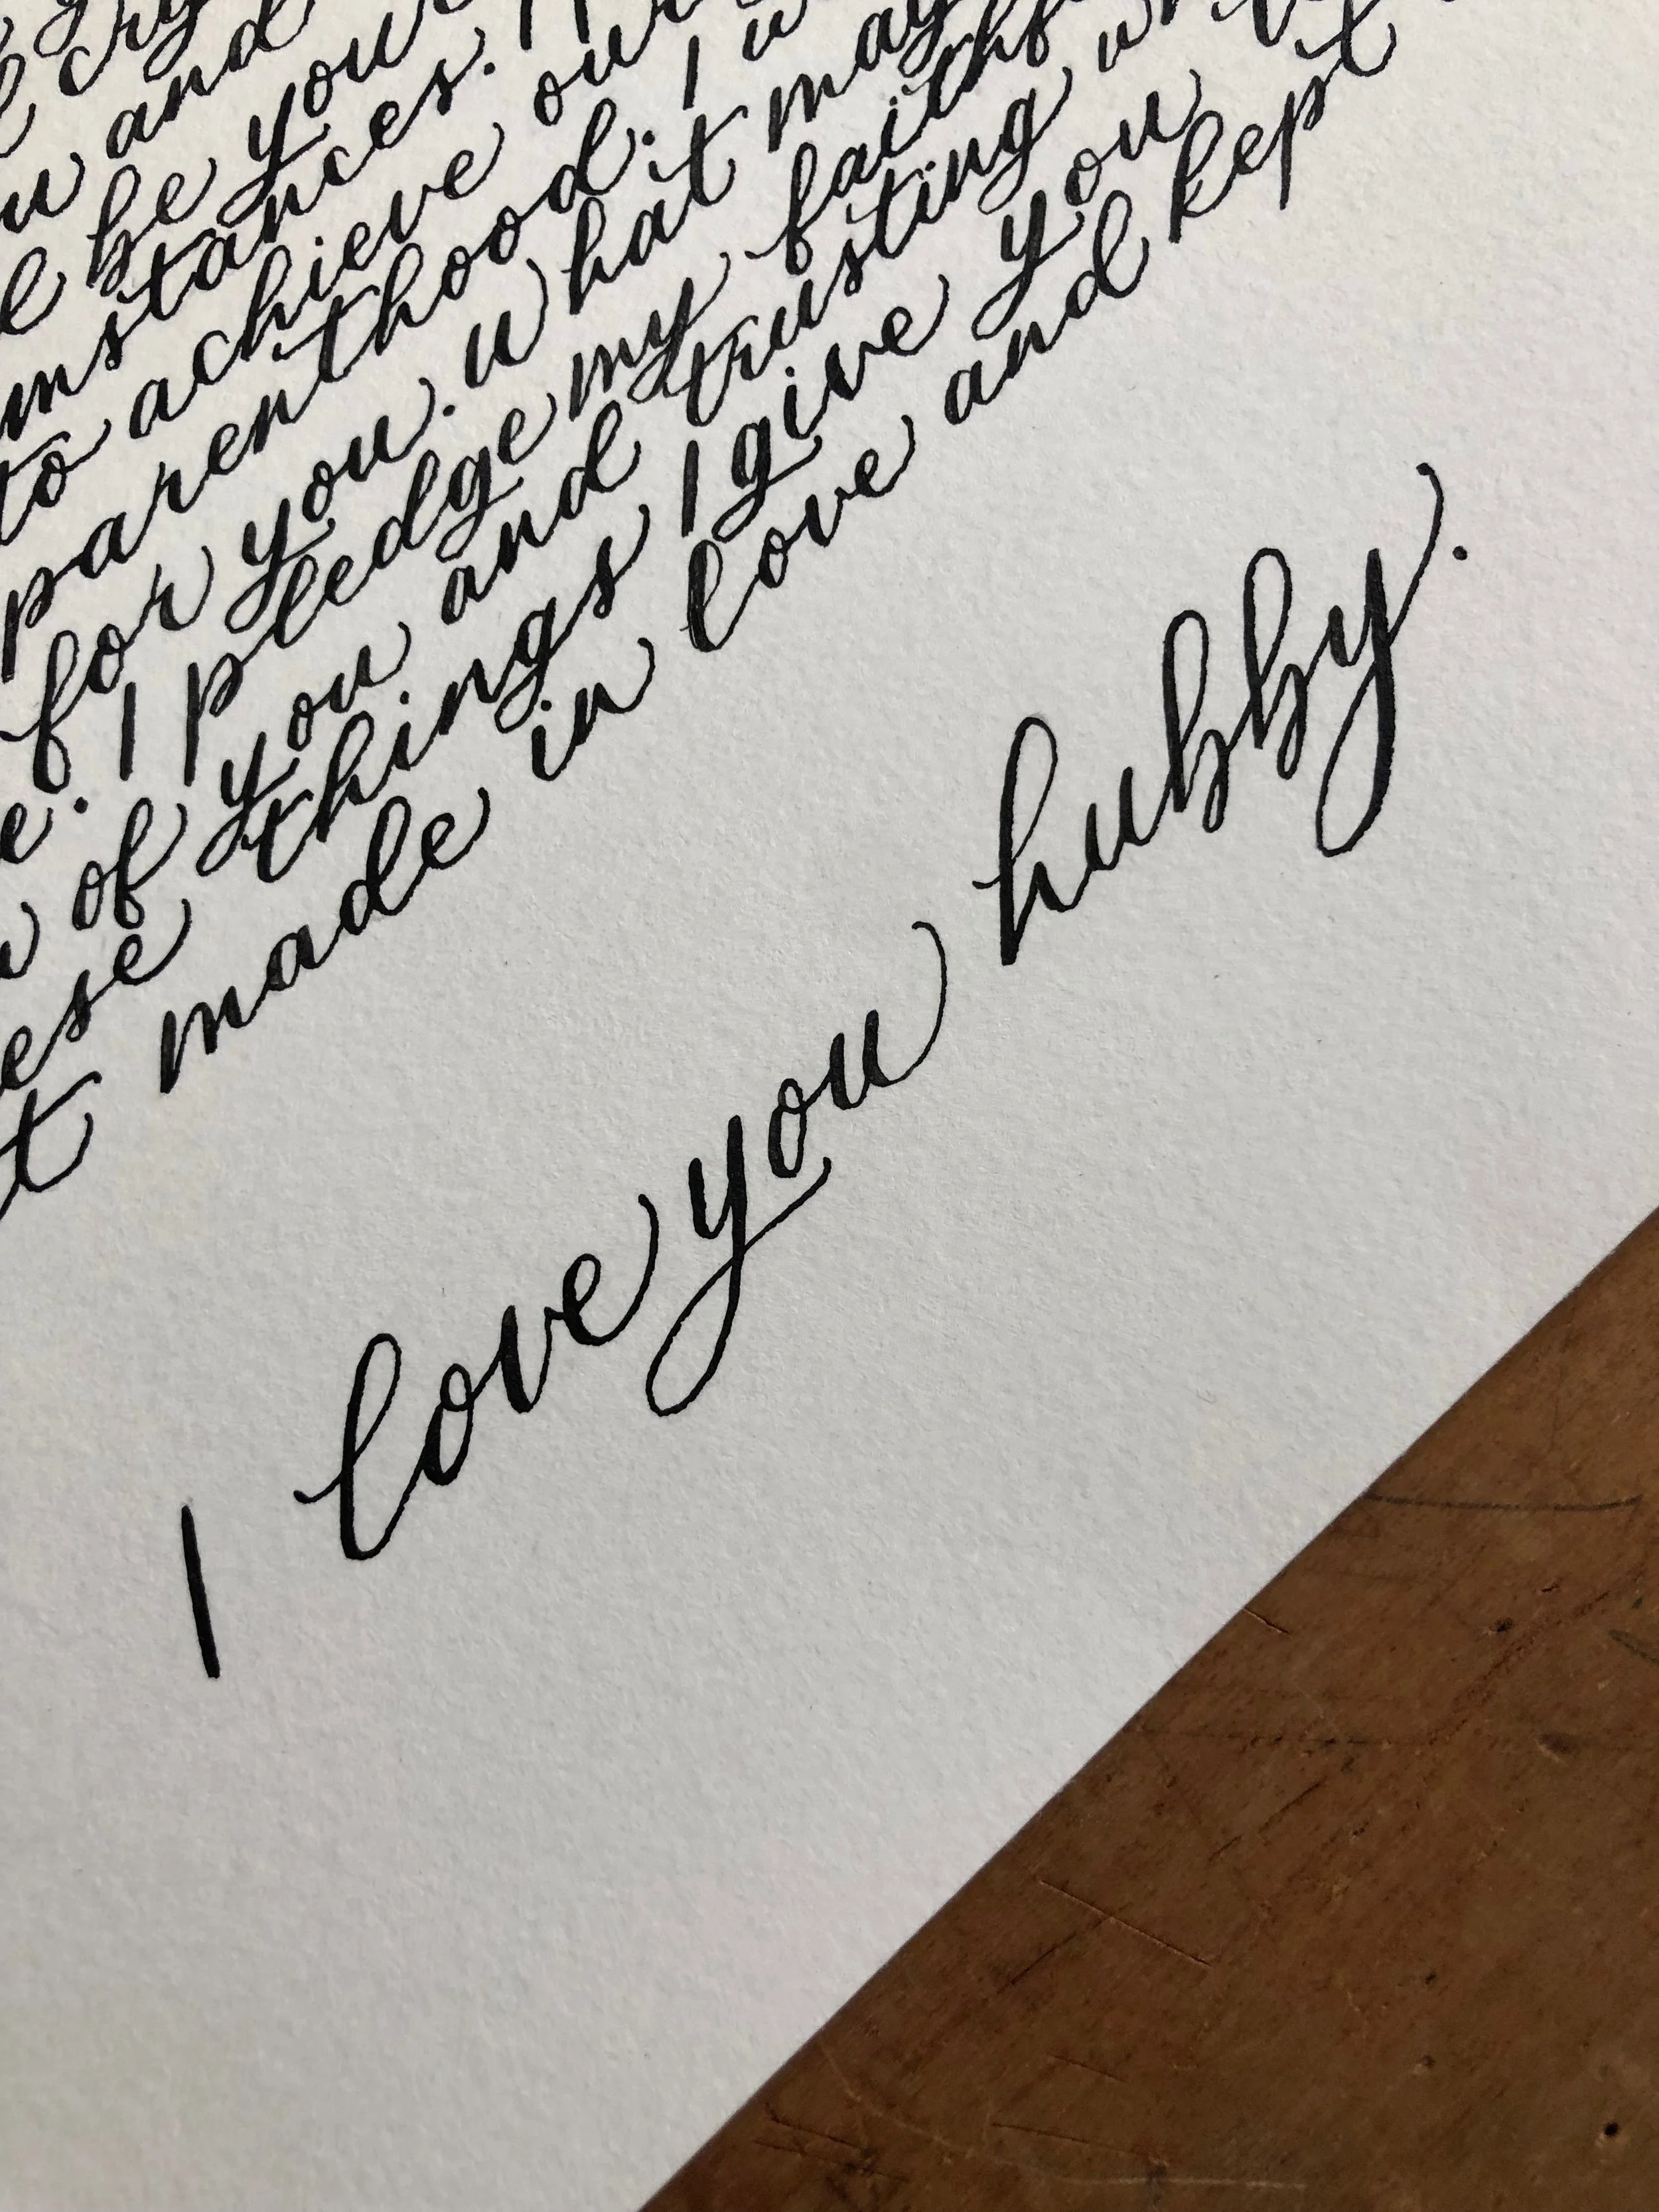 cry
and
be you
stances. I
to achieve our
parenthood. I
for you. what may
e. I pledge my faithf
of you and trusting
ese things I give you
t made in love and kept
I love you hubby.